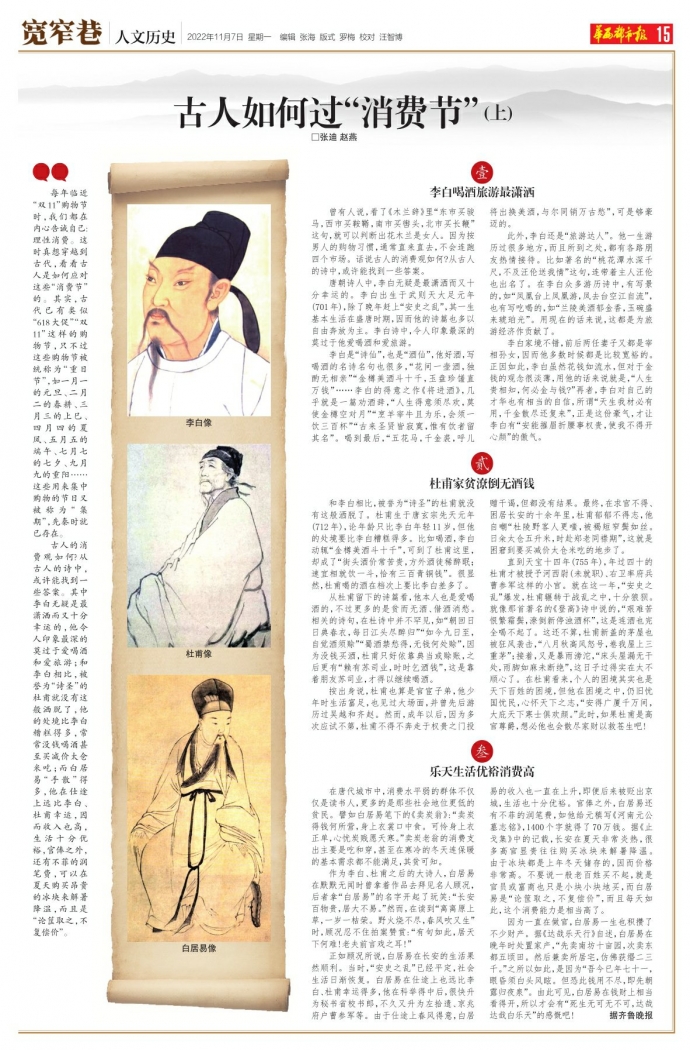 宽窄巷
人文历史
2022年11月7日 星期一 编辑 张海 版式 罗梅 校对 汪智博
华西都市报 15
古人如何过“消费节”(上)
□张迪 赵燕
每年临近
“双11”购物节
时,我们都在
内心告诫自己:
理性消费。这
时真想穿越到
古代,看看古
人是如何应对
这些“消费节”
的。其实,古
代已有类似
“618大促”“双
11”这样的购
物节,只不过
这些购物节被
统称为“重日
节”,如一月一
的元旦、二月
二的春耕、三
月三的上巳、
四月四的夏
凤、五月五的
端午、七月七
的七夕、九月
九的重阳……
这些用来集中
购物的节日又
被称为“集
期”,先秦时就
已存在。
古人的消
费观如何?从
古人的诗中,
或许能找到一
些答案。其中
李白无疑是最
潇洒而又十分
幸运的,他令
人印象最深的
莫过于爱喝酒
和爱旅游;和
李白相比,被
誉为“诗圣”的
杜甫就没有这
般洒脱了,他
的处境比李白
糟糕得多,常
常没钱喝酒甚
至买减价太仓
米吃;而白居
易“手散”得
多,他在仕途
上远比李白、
杜甫幸运,因
而收入也高,
生活十分优
裕,官俸之外,
还有不菲的润
笔费,可以在
夏天购买昂贵
的冰块来解暑
降温,而且是
“论筐取之,不
复偿价”。
李白像
杜甫像
白居易像
壹
李白喝酒旅游最潇洒
曾有人说,看了《木兰辞》里“东市买骏
马,西市买鞍鞯,南市买辔头,北市买长鞭”
这句,就可以判断出花木兰是女人。因为按
男人的购物习惯,通常直来直去,不会连跑
四个市场。话说古人的消费观如何?从古人
的诗中,或许能找到一些答案。
唐朝诗人中,李白无疑是最潇洒而又十
分幸运的。李白出生于武则天大足元年
(701年),除了晚年赶上“安史之乱”,其一生
基本生活在盛唐时期,因而他的诗篇也多以
自由奔放为主。李白诗中,令人印象最深的
莫过于他爱喝酒和爱旅游。
李白是“诗仙”,也是“酒仙”,他好酒,写
喝酒的名诗名句也很多,“花间一壶酒,独
酌无相亲”“金樽美酒斗十千,玉盘珍馐直
万钱”……李白的得意之作《将进酒》,几
乎就是一篇劝酒辞,“人生得意须尽欢,莫
使金樽空对月”“烹羊宰牛且为乐,会须一
饮三百杯”“古来圣贤皆寂寞,惟有饮者留
其名”。喝到最后,“五花马,千金裘,呼儿
将出换美酒,与尔同销万古愁”,可是够豪
迈的。
此外,李白还是“旅游达人”。他一生游
历过很多地方,而且所到之处,都有各路朋
友热情接待。比如著名的“桃花潭水深千
尺,不及汪伦送我情”这句,连带着主人汪伦
也出名了。在李白众多游历诗中,有写景
的,如“凤凰台上凤凰游,凤去台空江自流”,
也有写吃喝的,如“兰陵美酒郁金香,玉碗盛
来琥珀光”。用现在的话来说,这都是为旅
游经济作贡献了。
李白家境不错,前后两任妻子又都是宰
相孙女,因而他多数时候都是比较宽裕的。
正因如此,李白虽然花钱如流水,但对于金
钱的观念很淡薄,用他的话来说就是,“人生
贵相知,何必金与钱?”再者,李白对自己的
才华也有相当的自信,所谓“天生我材必有
用,千金散尽还复来”,正是这份豪气,才让
李白有“安能摧眉折腰事权贵,使我不得开
心颜”的傲气。
贰
杜甫家贫潦倒无酒钱
和李白相比,被誉为“诗圣”的杜甫就没
有这般洒脱了。杜甫生于唐玄宗先天元年
(712年),论年龄只比李白年轻11岁,但他
的处境要比李白糟糕得多。比如喝酒,李白
动辄“金樽美酒斗十千”,可到了杜甫这里,
却成了“街头酒价常苦贵,方外酒徒稀醉眠;
速宜相就饮一斗,恰有三百青铜钱”。很显
然,杜甫喝的酒在档次上要比李白差多了。
从杜甫留下的诗篇看,他本人也是爱喝
酒的,不过更多的是贫而无酒、借酒消愁。
相关的诗句,在杜诗中并不罕见,如“朝回日
日典春衣,每日江头尽醉归”“如今九日至,
自觉酒须赊”“蜀酒禁愁得,无钱何处赊”,因
为没钱买酒,杜甫只好依靠典当或赊账,之
后更有“赖有苏司业,时时乞酒钱”,这是靠
着朋友苏司业,才得以继续喝酒。
按出身说,杜甫也算是官宦子弟,他少
年时生活富足,也见过大场面,并曾先后游
历过吴越和齐赵。然而,成年以后,因为多
次应试不第,杜甫不得不奔走于权贵之门投
赠干谒,但都没有结果。最终,在求官不得、
困居长安的十余年里,杜甫郁郁不得志,他
自嘲“杜陵野客人更嗤,被褐短窄鬓如丝。
日籴太仓五升米,时赴郑老同襟期”,这就是
困窘到要买减价太仓米吃的地步了。
直到天宝十四年(755年),年过四十的
杜甫才被授予河西尉(未就职)、右卫率府兵
曹参军这样的小官。就在这一年,“安史之
乱”爆发,杜甫辗转于战乱之中,十分狼狈。
就像那首著名的《登高》诗中说的,“艰难苦
恨繁霜鬓,潦倒新停浊酒杯”,这是连酒也完
全喝不起了。这还不算,杜甫新盖的茅屋也
被狂风袭击,“八月秋高风怒号,卷我屋上三
重茅”;接着,又是暴雨滂沱,“床头屋漏无干
处,雨脚如麻未断绝”,这日子过得实在太不
顺心了。在杜甫看来,个人的困境其实也是
天下百姓的困境,但他在困境之中,仍旧忧
国忧民,心怀天下之志,“安得广厦千万间,
大庇天下寒士俱欢颜。”此时,如果杜甫是高
官尊爵,想必他也会散尽家财以救苍生吧!
叁
乐天生活优裕消费高
在唐代城市中,消费水平弱的群体不仅
仅是读书人,更多的是那些社会地位更低的
贫民。譬如白居易笔下的《卖炭翁》:“卖炭
得钱何所营,身上衣裳口中食。可怜身上衣
正单,心忧炭贱愿天寒。”卖炭老翁的消费支
出主要是吃和穿,甚至在寒冷的冬天连保暖
的基本需求都不能满足,其贫可知。
作为李白、杜甫之后的大诗人,白居易
在默默无闻时曾拿着作品去拜见名人顾况,
后者拿“白居易”的名字开起了玩笑:“长安
百物贵,居大不易。”然而,在读到“离离原上
草,一岁一枯荣。野火烧不尽,春风吹又生”
时,顾况忍不住拍案赞赏:“有句如此,居天
下何难!老夫前言戏之耳!”
正如顾况所说,白居易在长安的生活果
然顺利。当时,“安史之乱”已经平定,社会
生活日渐恢复。白居易在仕途上也远比李
白、杜甫幸运得多,他在科举得中后,很快升
为秘书省校书郎,不久又升为左拾遗、京兆
府户曹参军等。由于仕途上春风得意,白居
易的收入也一直在上升,即便后来被贬出京
城,生活也十分优裕。官俸之外,白居易还
有不菲的润笔费,如他给元稹写《河南元公
墓志铭》,1400个字就得了70万钱。据《止
戈集》中的记载,长安在夏天非常炎热,很
多高官显贵往往购买冰块来解暑降温。
由于冰块都是上年冬天储存的,因而价格
非常高。不要说一般老百姓买不起,就是
官员或富商也只是小块小块地买,而白居
易是“论筐取之,不复偿价”,而且每天如
此,这个消费能力是相当高了。
因为一直在做官,白居易一生也积攒了
不少财产。据《达哉乐天行》自述,白居易在
晚年时处置家产,“先卖南坊十亩园,次卖东
都五顷田。然后兼卖所居宅,仿佛获缗二三
千。”之所以如此,是因为“吾今已年七十一,
眼昏须白头风眩。但恐此钱用不尽,即先朝
露归夜泉”。由此可见,白居易在钱财上相当
看得开,所以才会有“死生无可无不可,达哉
达哉白乐天”的感慨吧!
据齐鲁晚报